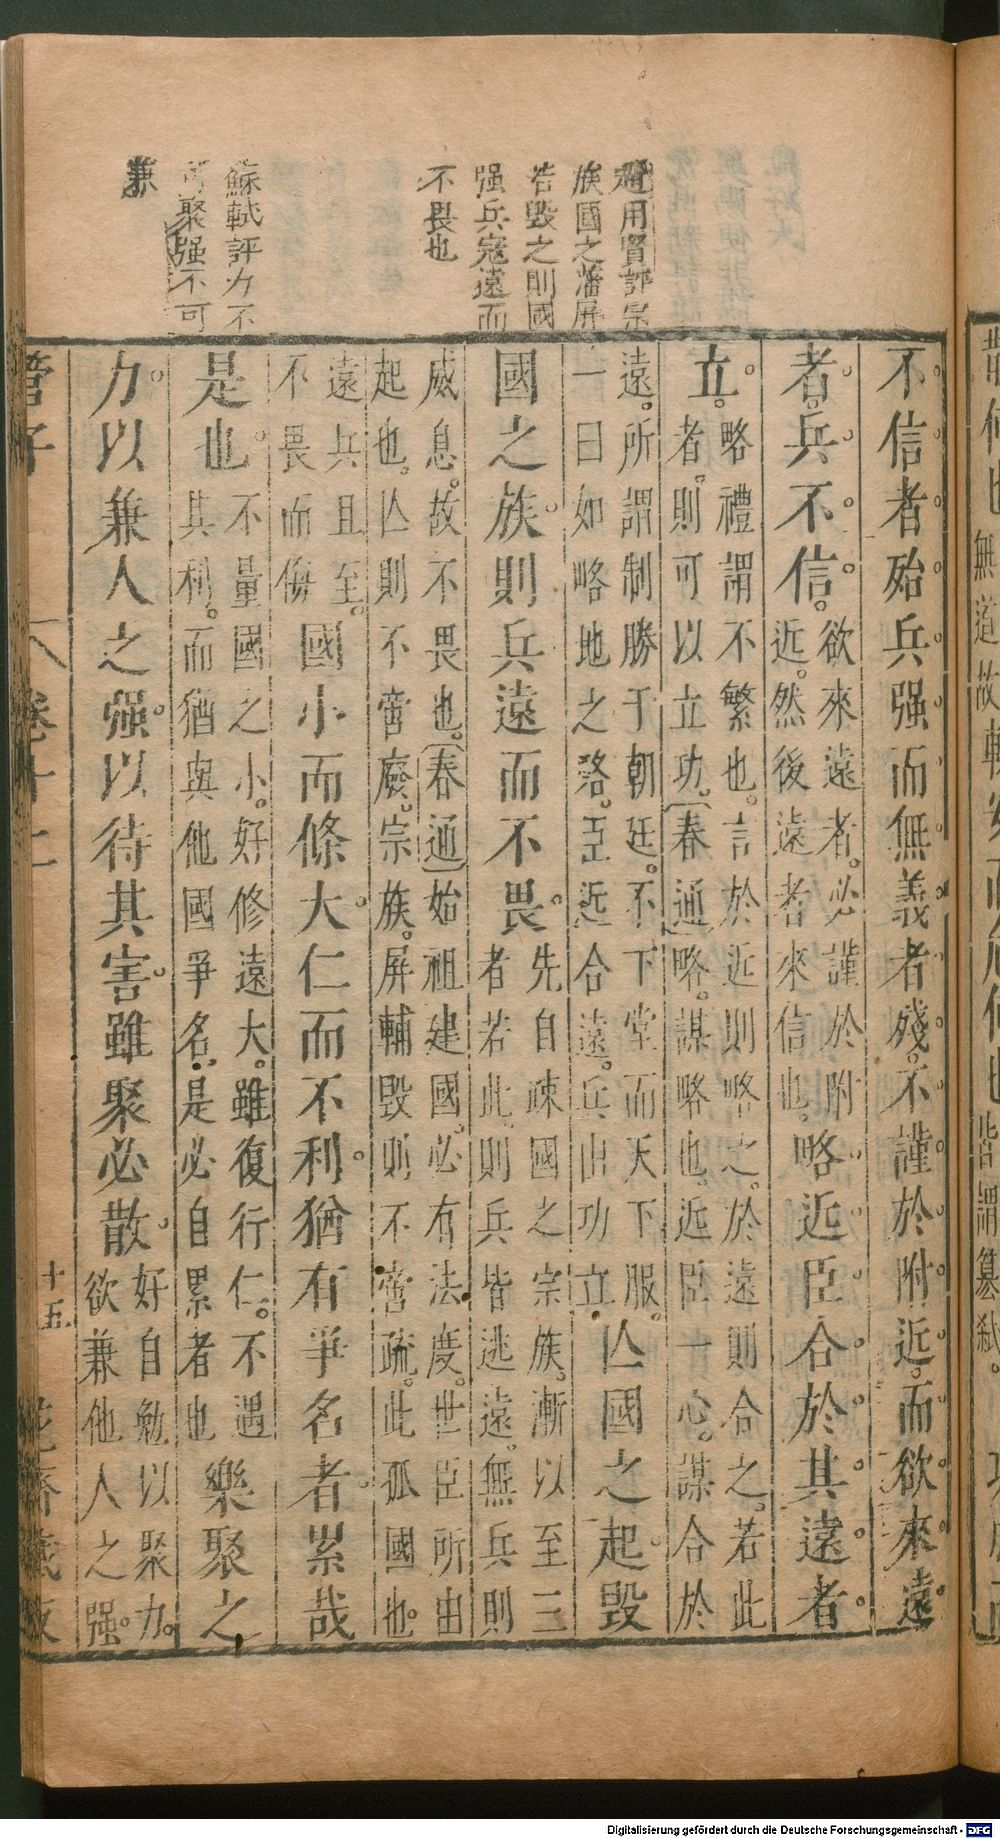 趙用賢評宗
族國之藩屏
若毀之則國
强兵寇遠而
不畏也
蘇軾評力不
可聚强不可
兼
不信者殆兵强而無義者殘。不謹於附近。而欲來遠
者。兵不信。
欲來遠者。必謹於附
近。然後遠者來信也。
略近臣合於其遠者
立。
略禮謂不繁也。言於近則略之。於遠則合之。若此
者。則可以立功。(春通)略。謀略也。近臣一心。謀合於
遠。所謂制勝于朝廷。不下堂而天下服。
一曰如略地之略。臣近合遠。兵由功立。
亾國之起毀
國之族。則兵遠而不畏。
先自疎國之宗族。漸以至三
者若此。則兵皆逃遠。無兵則
威息。故不畏也。(春通)始祖建國。必有法度。世臣所由
起也。亾則不啻廢。宗族。屏輔毀則不啻疏。此孤國也。
遠兵且至。
不畏而侮
國小而條大。仁而不利。猶有爭名者。累哉
是也。
不量國之小。好修遠大。雖復行仁。不遇
其利。而猶與他國爭名。是必自累者也
樂聚之
力。以兼人之强。以待其害。雖聚必散。
好自勉以聚力。
欲兼他人之强。
管子
卷十二
十五
花齋藏板
Digitalisierung gefördert durch die Deutsche Forschungsgemeinschaft - DFG